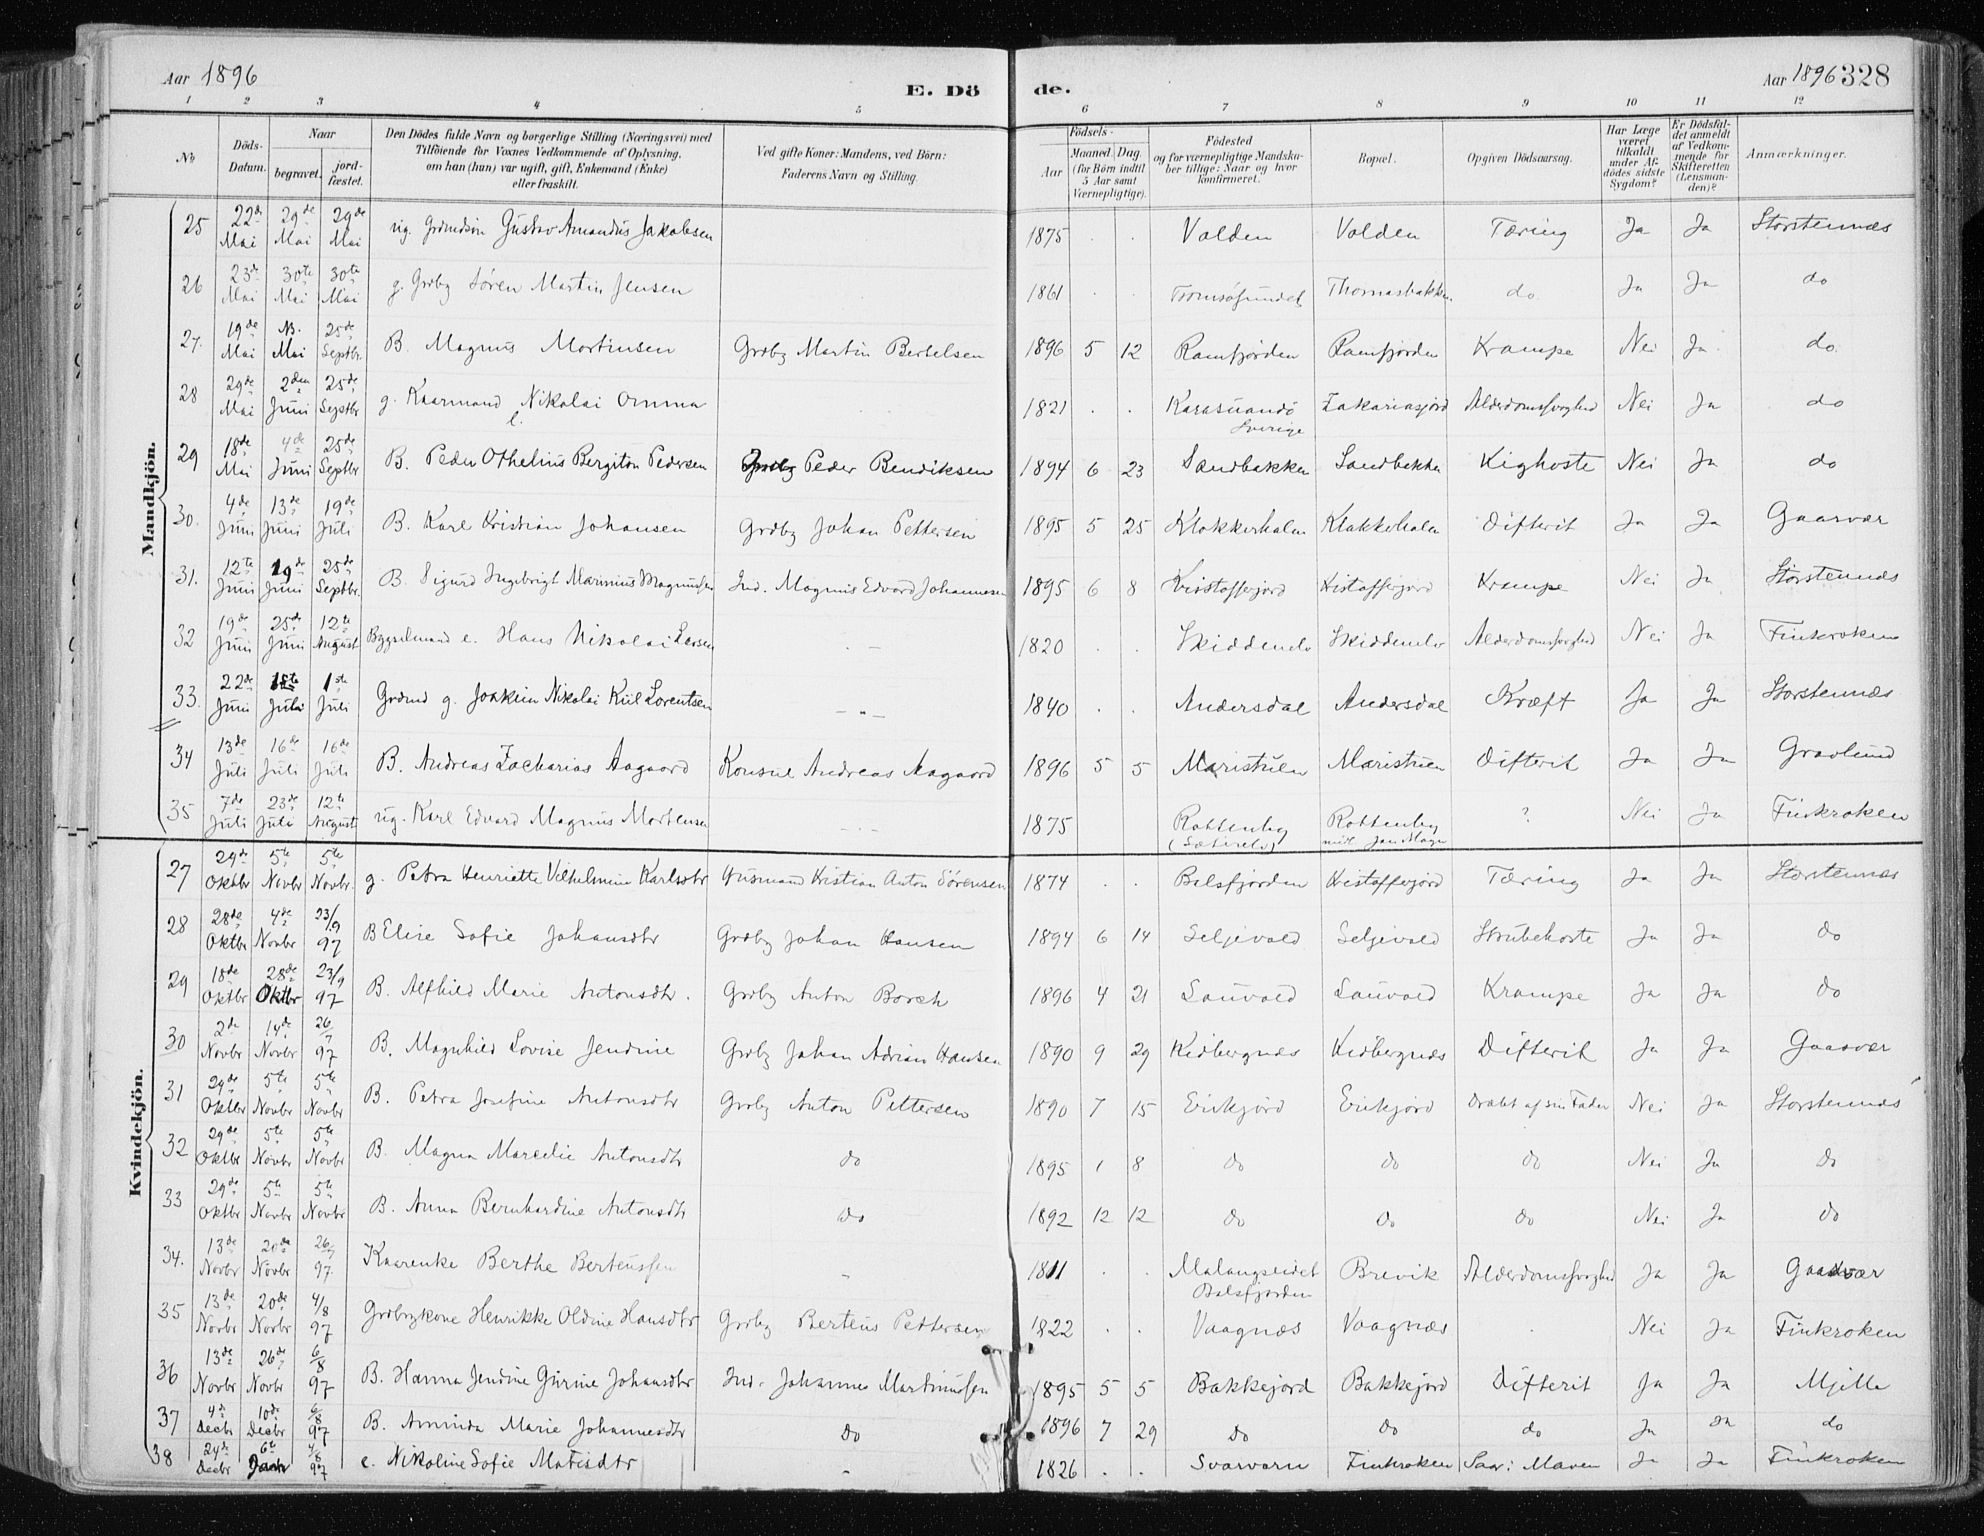 Aar 1896
E. Dö de.
Aar 1896 328
1 2 3 4 5 6 7 8 9 10 11 12
No
Döds-Datum.
Naar
begravet.
jord-fæstet.
Den Dödes fulde Navn og borgerlige Stilling (Næringsvei) med Tilföiende for Voxnes Vedkommende af Oplysning, om han (hun) var ugift, gift, Enkemand (Enke) eller fraskilt.
Ved gifte Koner: Mandens, ved Börn: Faderens Navn og Stilling.
Födsels-
Aar
Maaned. Dag. (for Börn indtil 5 Aar samt Værnepligtige).
Födested og for værnepligtige Mandskaber tillige: Naar og hvor konfirmeret.
Bopæl.
Opgiven Dödsaarsag.
Har Læge været tilkaldt under Afdödes sidste Sygdom?
Er Dödsfaldet anmeldt af Vedkommende for Skifteretten (Lensmanden)?
Anmærkninger.
Mandkjön.
25 22de Mai 29de Mai 29de Mai ug. Grdmdsön Gustav Amandus Jakobsen 1875 . . Volden Volden Tæring Ja Ja Storstennæs
26 23de Mai 30te Mai 30te Mai g. Grdbg Sören Martin Jensen 1861 . . Tromsösundet Thomasbakken do. Ja Ja do
27. 19de Mai Mai 25de Septbr. B. Magnus Mortinsen Grdbg Martin Bertelsen 1896 5 12 Ramfjorden Ramfjorden Krampe Nei Ja do.
28 29de Mai 2den Juni 25de Septbr g. Kaarmand Nikolai Omma 1821 . . Karasuando Sverige Zakariasjord Alderdomssvaghed Nei Ja do
29 18de Mai 4de Juni 25de Septbr B. Peder Othelius Bergiton Pedersen Grdbg Peder Bendiksen 1894 6 23 Sandbakken Sandbakken Kighoste Nei Ja do
30. 4de Juni 13de Juni 19de Juli B. Karl Kristian Johansen Grdbg Johan Pettersen 1895 5 25 Klokkerhalen Klokkerhalen Difterit Ja Ja Gaasvær
31. 12te Juni 19de Juni 25de Septbr. B. Sigurd Ingebrigt Marinius Magnussen Ind. Magnus Edvard Johannesen 1895 6 8 Kristofferjord Kistofferjord Krampe Nei Ja Storstennæs
32 19de Juni 25de Juni 12te August Bygselmand e. Hans Nikolai Larsen 1820 . . Skiddenelv Skiddenelv Alderdomssvaghed Nei Ja Finkroken
33. 22de Juni 1ste Juli 1ste Juli Grdmd g. Joakim Nikolai Kiil Lorentsen 1840 . . Andersdal Andersdal Kræft Ja Ja Storstennæs
34 13de Juli 16de Juli 16de Juli B. Andreas Zacharias Aagaard Konsul Andreas Aagaard 1896 5 5 Maristuen Maristuen Difterit Ja Ja Gravlund
35 7de Juli 23de Juli 12te August ug. Karl Edvard Magnus Mortensen 1875 Rottenbg Rottenbg ? Nei Ja Finkroken
Kvindekjön.
27 29de Oktbr 5te Novbr 5te Novbr. g. Petra Henriette Vilhelmine Karlsdtr Gusmand Kristian Anton Sörensen 1874 . . Balsfjorden Kistofferjord Tæring Ja Ja Storstennæs
28 28de Oktbr 4de Novbr 23/9 97 B Elise Sofie Johansdtr Grdbg Johan Hansen 1894 6 14 Seljevold Seljevold Strubehoste Ja Ja do
29 18de Oktbr 28de Oktbr 23/9 97 B. Alfhild Marie Antonsdtr. Grdbg Anton Borch 1896 4 21 Sauvold Sauvold Krampe Ja Ja do
30 2de Novbr 14de Novbr 26/7 97 B. Magnhild Lovise Jendine Grdbg Johan Adrian Hansen 1890 9 29 Kidbergnæs Kidbergnæs Difterit Ja Ja Gaasvær
31 29de Oktbr 5te Novbr 5te Novbr B. Petra Josefine Antonsdtr Grdbg Anton Pettersen 1890 7 15 Erikjord Erikjord Dræbt af sin Fader Nei Ja Storstennæs
32 29de Oktbr 5te Novbr 5te Novbr B. Magna Marcelie Antonsdtr do 1895 1 8 do do do Nei Ja do
33 29de Oktbr 5te Novbr 5te Novbr B. Anna Bernhardine Antonsdtr do 1892 12 12 do do do Nei Ja do
34. 13de Novbr 20de Novbr 26/7 97. Kaarenke Berthe Berteussen 1811 . . Malangseidet Balsfjorden Brevik Alderdomssvaghed Ja Ja Gaasvær
35 13de Novbr 20de Novbr 4/8 97 Grdbrgkone Henrikke Oldine Hansdtr Grdbg Berteus Pettersen 1822 . . Vaagnæs Vaagnæs . Nei Ja Finkroken
36 13de Novbr 26de Novbr 6/8 97 B. Hanna Jendine Gurine Johansdtr Ind. Johannes Martinussen 1895 5 5 Bakkejord Bakkejord Difterit Ja Ja Mjelle
37 4de Decbr 10de Decbr 6/8 97 B. Aminda Marie Johannesdtr do 1896 7 29 do do do Ja Ja do
38 24de Decbr 6te Janr 4/8 97 e. Nikoline Sofie Matisdtr 1826 . . Svarvarn Finkroken Saar i Maven Ja Ja Finkroken